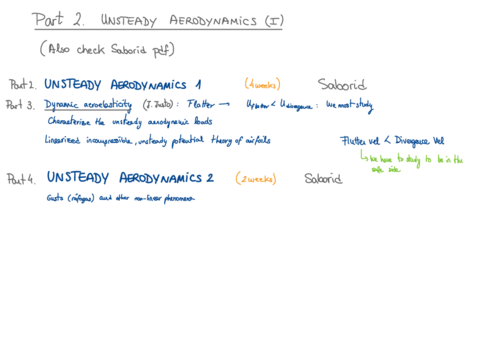 Part 2. UNSTEADY AERODYNAMICS (I)
(Also check Saborid pdf)
Part 2. UNSTEADY AERODYNAMICS 1 (4 weeks) Saborid
Part 3. Dynamic aeroelasticity (J. Justo): Flutter → U flutter < U divergence : We must study
Characterize the unsteady aerodynamic loads
Linearized incompressible, unsteady potential theory of airfoils
Flutter vel < Divergence Vel
↳ We have to study to be in the safe side
Part 4. UNSTEADY AERODYNAMICS 2 (2 weeks) Saborid
Gusts (ráfagas) and other non-linear phenomena